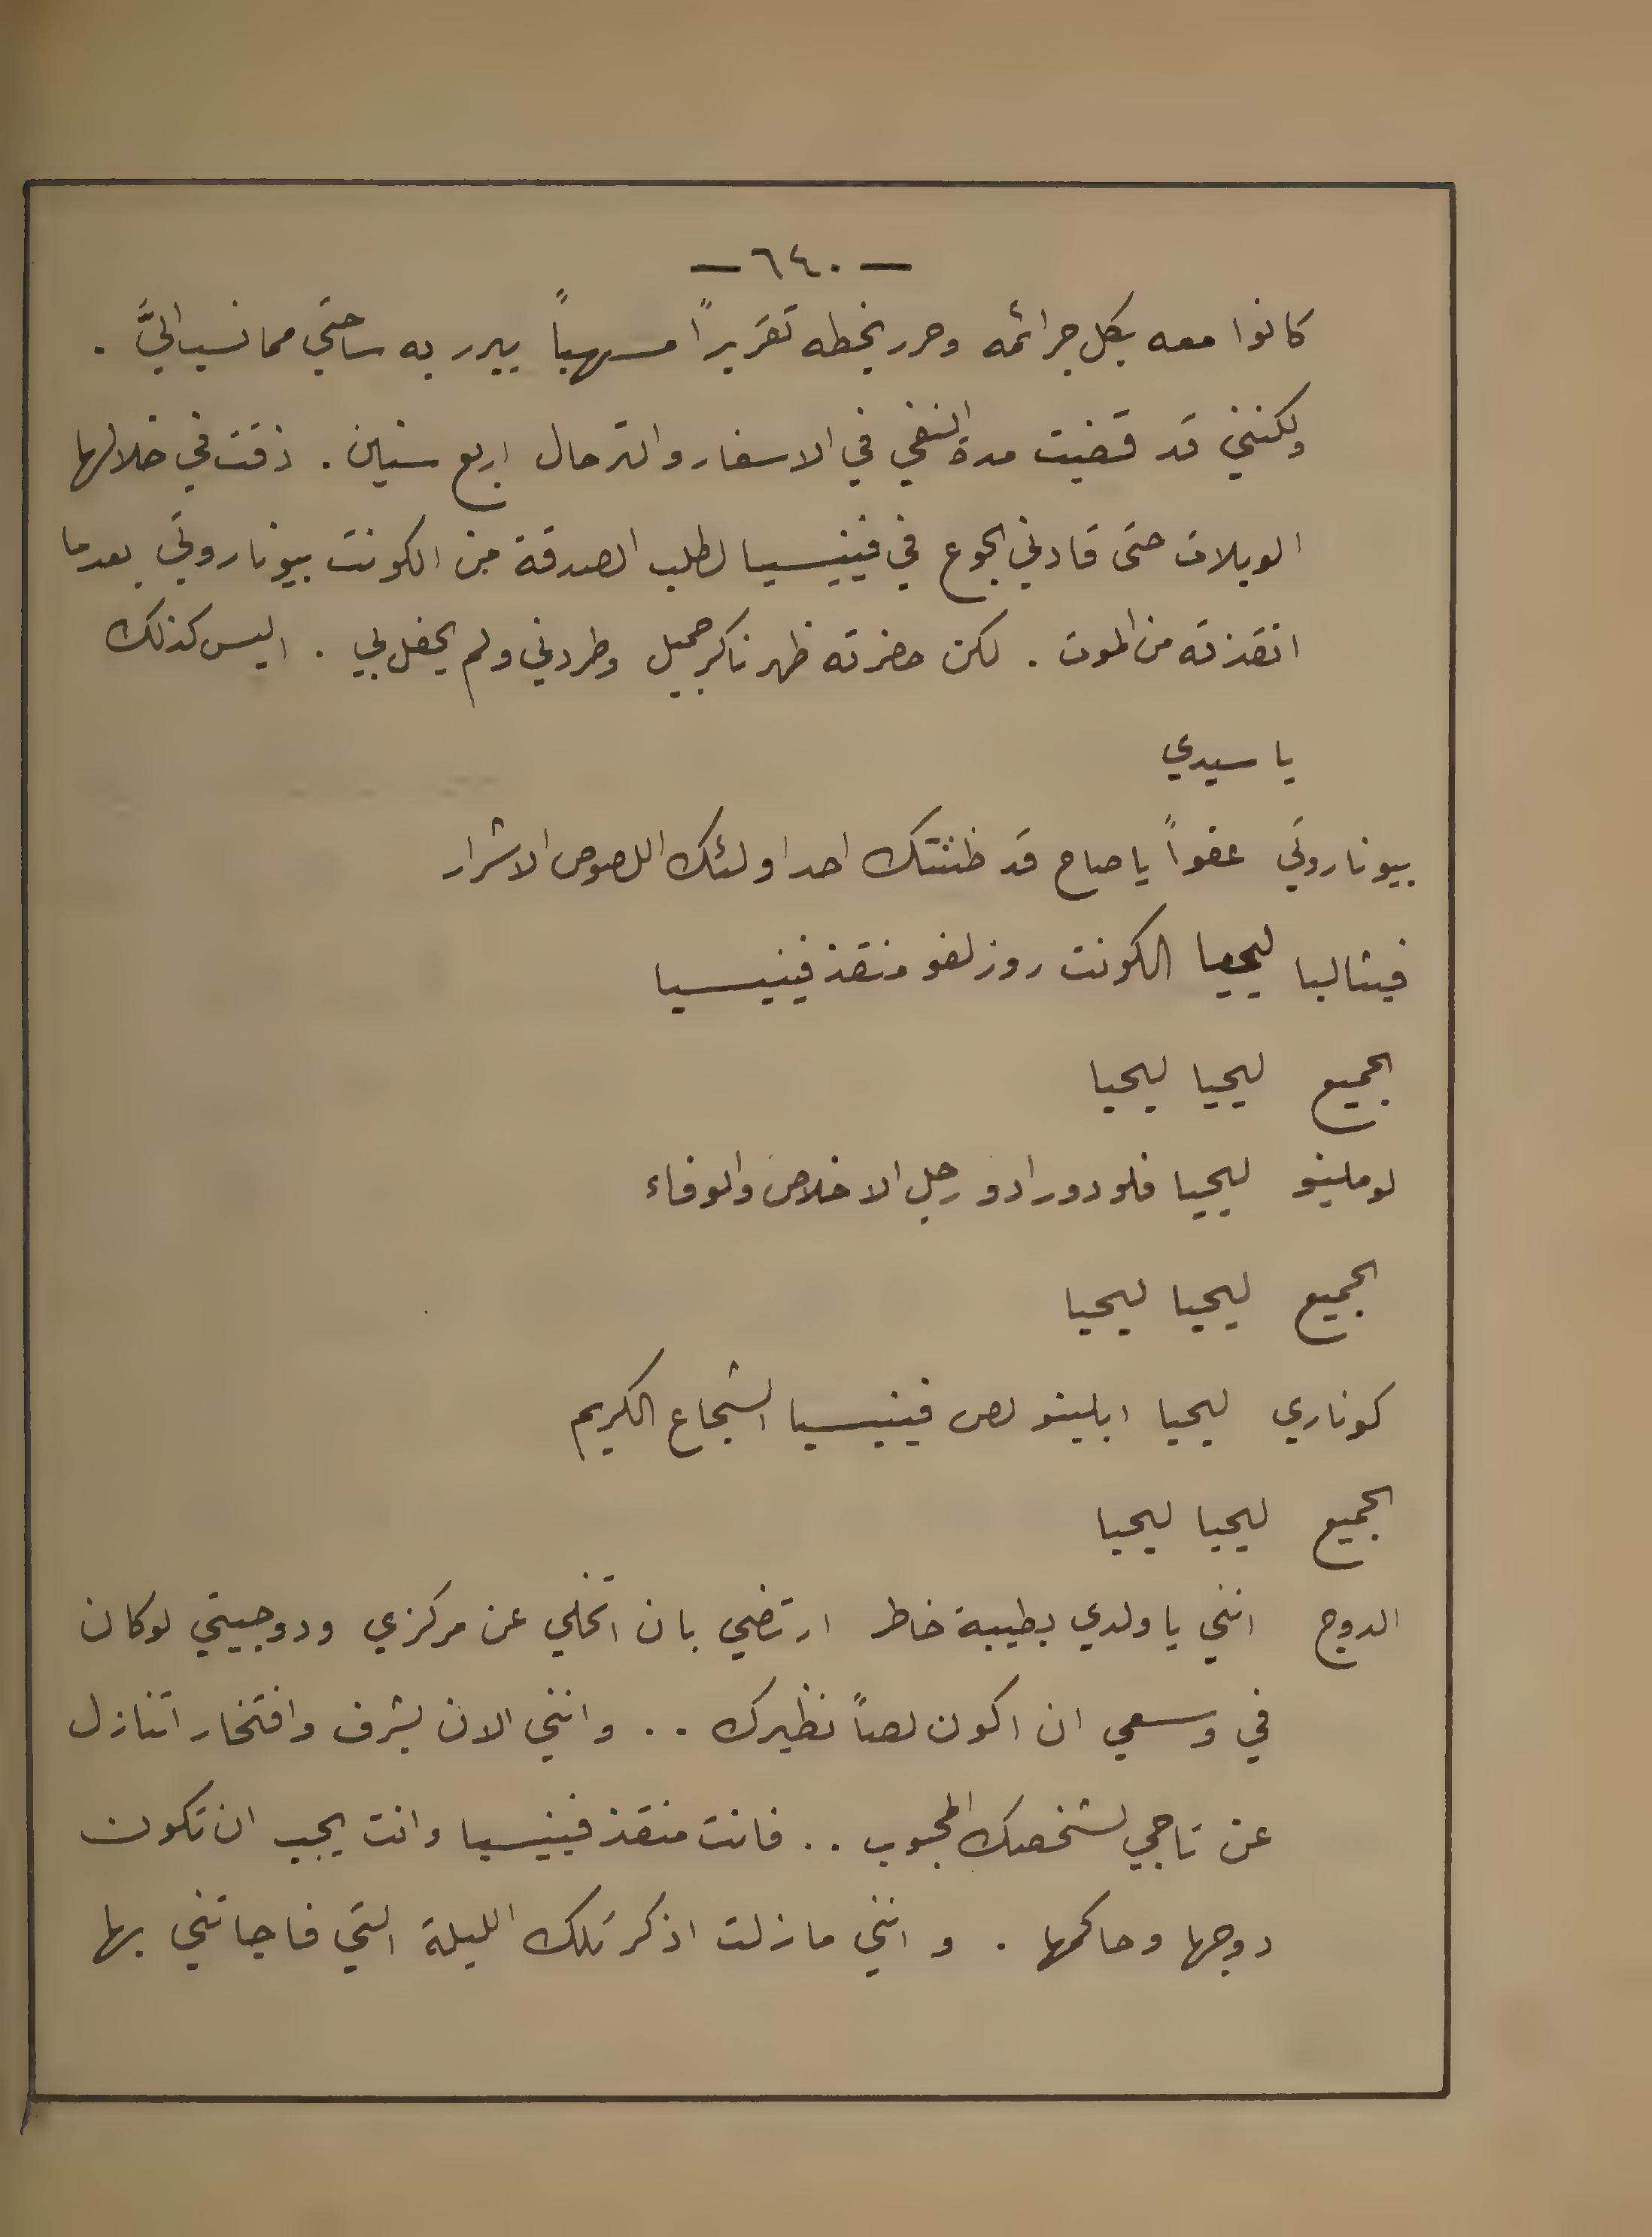 — ٦٤٠ —
كانوا معه بكل جرائمه وحرر بخطه تقريراً مسهباً يبرر به ساحتي مما نسب اليَّ .
ولكنني قد قضيت مدة النفي في الاسفار والترحال اربع سنين . ذقت في خلالها
الويلات حتى قادني الجوع في فينيسيا لطلب الصدقة من الكونت بيوناروتي بعدما
انقذته من الموت . لكن حضرته ظهر ناكر جميل وطردني ولم يحفل بي . اليس كذلك
يا سيدي
بيوناروتي عفواً يا صاح قد ظننتك احد اولئك اللصوص الاشرار
فيتاليبا ليحيا الكونت روزلفو منقذ فينيسيا
الجميع ليحيا ليحيا
لوملينو ليحيا فلودورادو رجل الاخلاص والوفاء
الجميع ليحيا ليحيا
كوناري ليحيا ابلينو لص فينيسيا الشجاع الكريم
الجميع ليحيا ليحيا
الدوج انني يا ولدي بطيبة خاطر ارتضي بان اتخلي عن مركزي ودوجيتي لو كان
في وسعي ان اكون لصاً نظيرك .. وانني الان بشرف وافتخار اتنازل
عن تاجي لشخصك المحبوب .. فانت منقذ فينيسيا وانت يجب ان تكون
دوجها وحاكمها . و انني مازلت اذكر تلك الليلة التي فاجاتني بها